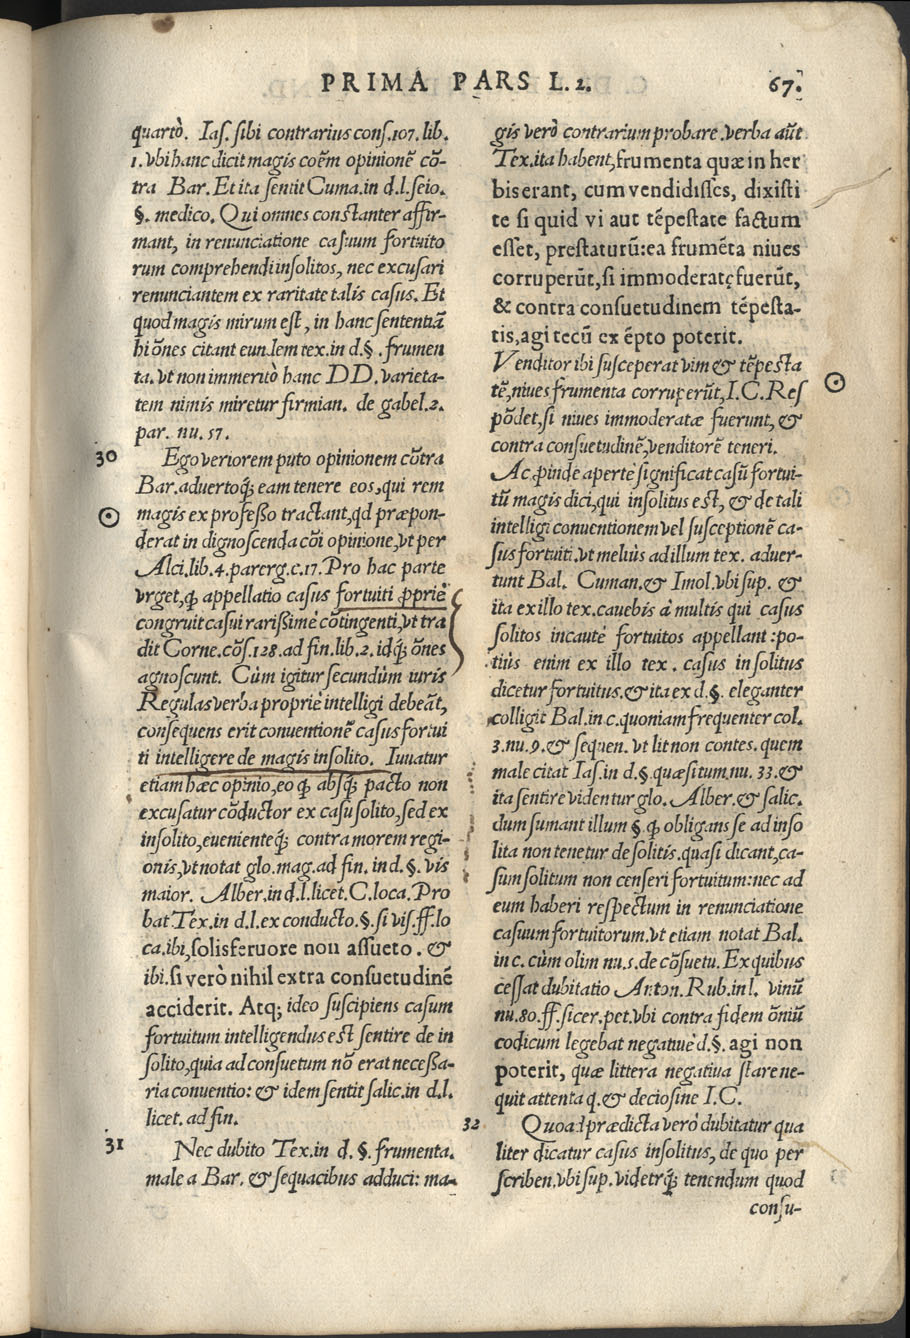 PRIMA PARS L. 2. 67.
quartò. Ias. sibi contrarius cons. 107. lib.
1. vbi hanc dicit magis coẽm opinionẽ cõ-
tra Bar. Et ita sentit Cuma. in d. l. seio.
§. medico. Qui omnes constanter affir-
mant, in renunciatione casuum fortuito
rum comprehendi insolitos, nec excusari
renunciantem ex raritate talis casus. Et
quod magis mirum est, in hanc sententiã
hi õnes citant eundem tex. in d. §. frumen
ta. vt non immeritò hanc DD. varieta-
tem nimis miretur firmian. de gabel. 2.
par. nu. 57.
30 Ego veriorem puto opinionem cõtra
Bar. aduertoq́; eam tenere eos, qui rem
magis ex professo tractant, qd præpon-
derat in dignoscenda cõi opinione, vt per
Alci. lib. 4. parerg. c. 17. Pro hac parte
vrget, ꝙ appellatio casus fortuiti ꝓpriè
congruit casui rarissimè cõtingenti, vt tra
dit Corne. cõs. 128. ad fin. lib. 2. idq́; õnes
agnoscunt. Cùm igitur secundùm iuris
Regulas verba propriè intelligi debeãt,
consequens erit conuentionẽ casus fortui
ti intelligere de magis insolito. Iuuatur
etiam hæc opinio, eo ꝙ absq́; pacto non
excusatur cõductor ex casu solito, sed ex
insolito, euenienteq́; contra morem regi-
onis, vt notat glo. mag. ad fin. in d. §. vis
maior. Alber. in d. l. licet. C. loca. Pro
bat Tex. in d. l. ex conducto. §. si vis. ff. lo
ca. ibi, solis feruore non assueto. &
ibi. si verò nihil extra consuetudinẽ
acciderit. Atq; ideo suscipiens casum
fortuitum intelligendus est sentire de in
solito, quia ad consuetum nõ erat necessa-
ria conuentio: & idem sentit salic. in d. l.
licet. ad fin.
31 Nec dubito Tex. in d. §. frumenta.
male a Bar. & sequacibus adduci: ma-
gis verò contrarium probare. verba aũt
Tex. ita habent, frumenta quæ in her
biserant, cum vendidisses, dixisti
te si quid vi aut tẽpestate factum
esset, prestaturũ: ea frumẽta niues
corruperũt, si immoderatę fuerũt,
& contra consuetudinem tẽpesta-
tis, agi tecũ ex ẽpto poterit.
Venditor ibi susceperat vim & tẽpesta
tẽ, niues frumenta corruperũt, I. C. Res
põdet, si niues immoderatæ fuerunt, &
contra consuetudinẽ, venditorẽ teneri.
Ac ꝓinde apertè significat casũ fortui-
tũ magis dici, qui insolitus est, & de tali
intelligi conuentionem vel susceptionẽ ca-
sus fortuiti. vt meliùs ad illum tex. aduer-
tunt Bal. Cuman. & Imol. vbi sup. &
ita ex illo tex. cauebis à multis qui casus
solitos incautè fortuitos appellant: po-
tiùs enim ex illo tex. casus insolitus
dicetur fortuitus. & ita ex d. §. eleganter
colligit Bal. in c. quoniam frequenter col.
3. nu. 9. & sequen. vt lit non contes. quem
male citat Ias. in d. §. quæsitum. nu. 33. &
ita sentire videntur glo. Alber. & salic.
dum sumant illum §. ꝙ obligans se ad inso
lita non tenetur de solitis. quasi dicant, ca-
sum solitum non censeri fortuitum: nec ad
eum haberi respectum in renunciatione
casuum fortuitorum. vt etiam notat Bal.
in c. cùm olim nu. 5. de cõsuetu. Ex quibus
cessat dubitatio Anton. Rub. in l. vinũ
nu. 80. ff. si cer. pet. vbi contra fidem õniũ
codicum legebat negatiuè d. §. agi non
poterit, quæ littera negatiua stare ne-
quit attenta q. & decisione I. C.
32 Quoad prædicta verò dubitatur qua
liter dicatur casus insolitus, de quo per
scriben. vbi sup. videtrq́; tenendum quod
consu-